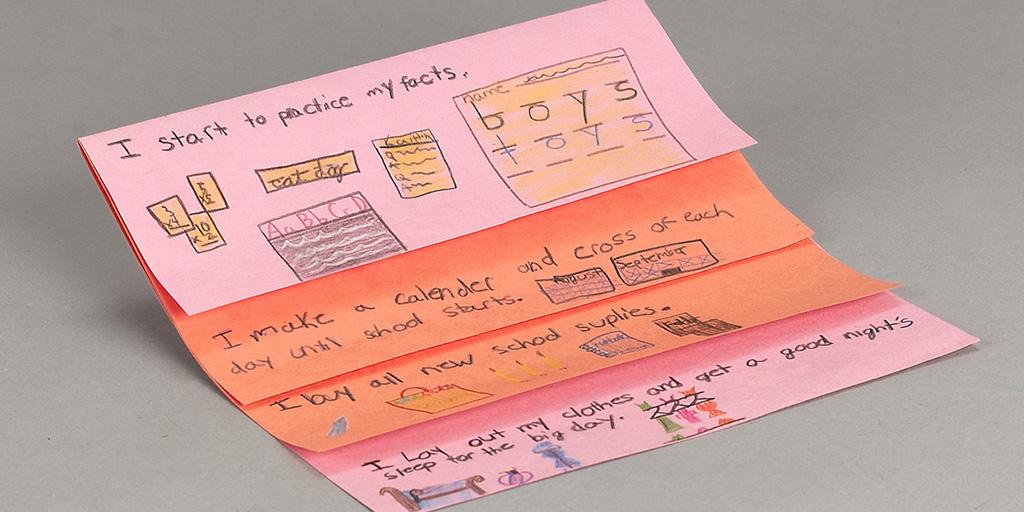 I start to practice my facts.
name
b o y s
t o y s
cat dog
AaBbCcD
5
x5
3
x4
10
x2
I make a calender and cross of each
day until shool starts.
August
September
I buy all new school suplies.
I Lay out my clothes and get a good night's
sleep for the big day.